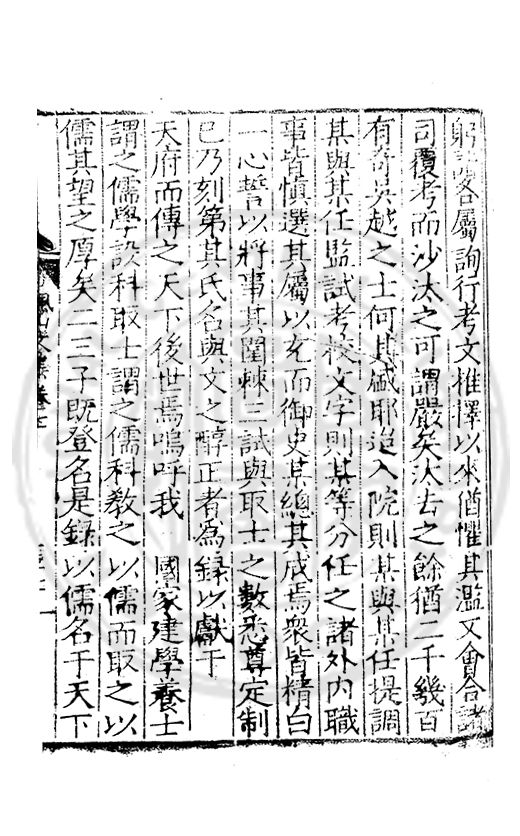 躬 畧屬詢行考文推擇以來猶懼其濫又會合諸
司覆考而沙汰之可謂嚴矣汰去之餘猶二千幾百
有奇吳越之士何其盛耶迨入院則某與某任提調
某與某任監試考校文字則某等分任之諸外内職
事皆慎選其屬以充而御史某總其成焉衆皆精白
一心誓以將事其闈棘三試與取士之數悉尊定制
已乃刻第其氏名與文之醇正者為錄以獻于
天府而傳之天下後世焉嗚呼我 國家建學養士
謂之儒學設科取士謂之儒科教之以儒而取之以
儒其望之厚矣二三子既登名是錄以儒名于天下